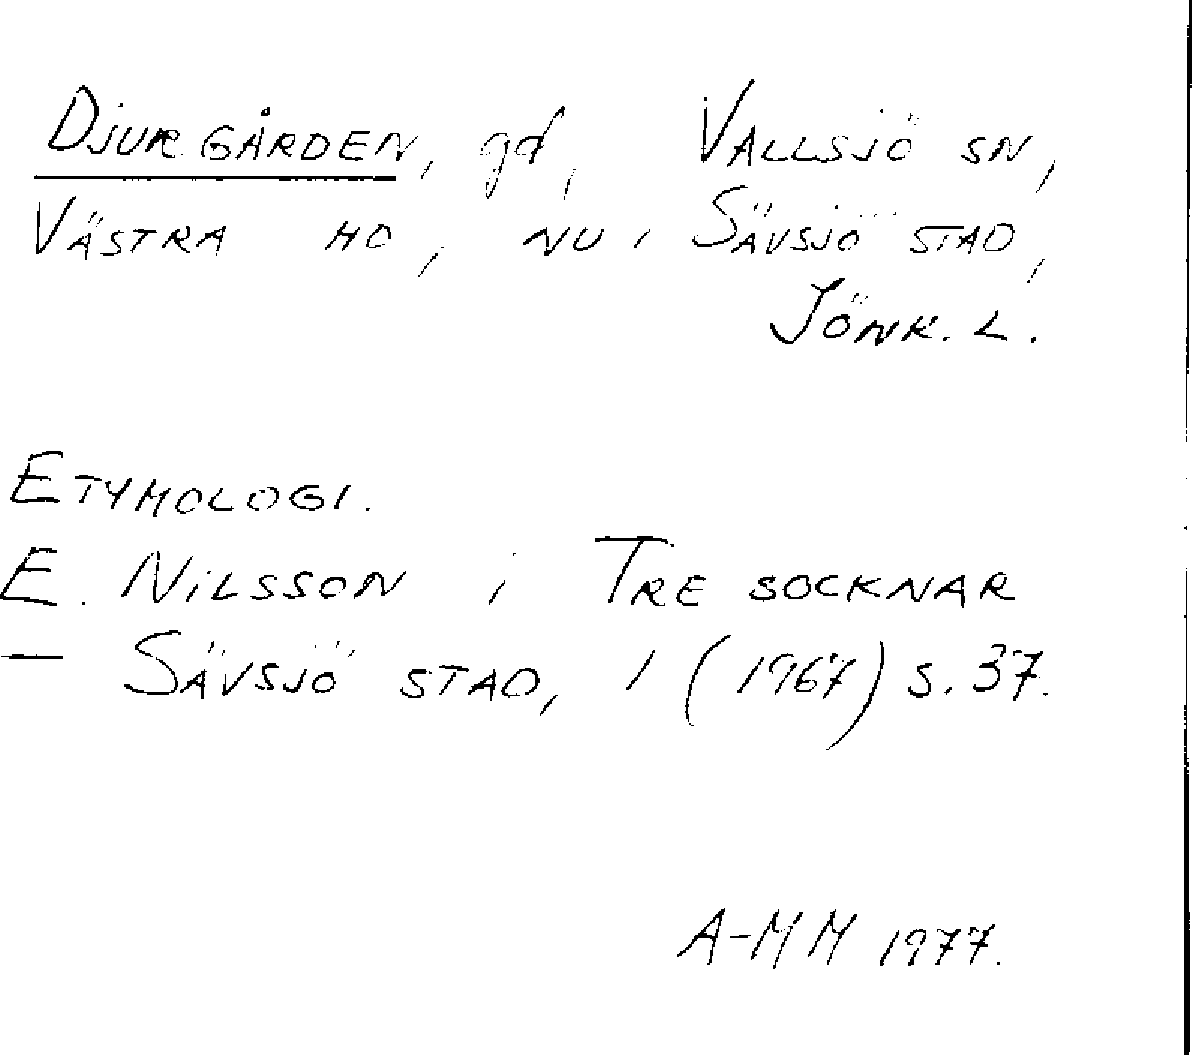 Djurgården, gd, Vallsjö sn,
Västra hd, nu i Sävsjö stad,
Jönk. l.
Etymologi.
E. Nilsson i Tre socknar
– Sävsjö stad, 1 (1967) s. 37.
A-MM 1977.